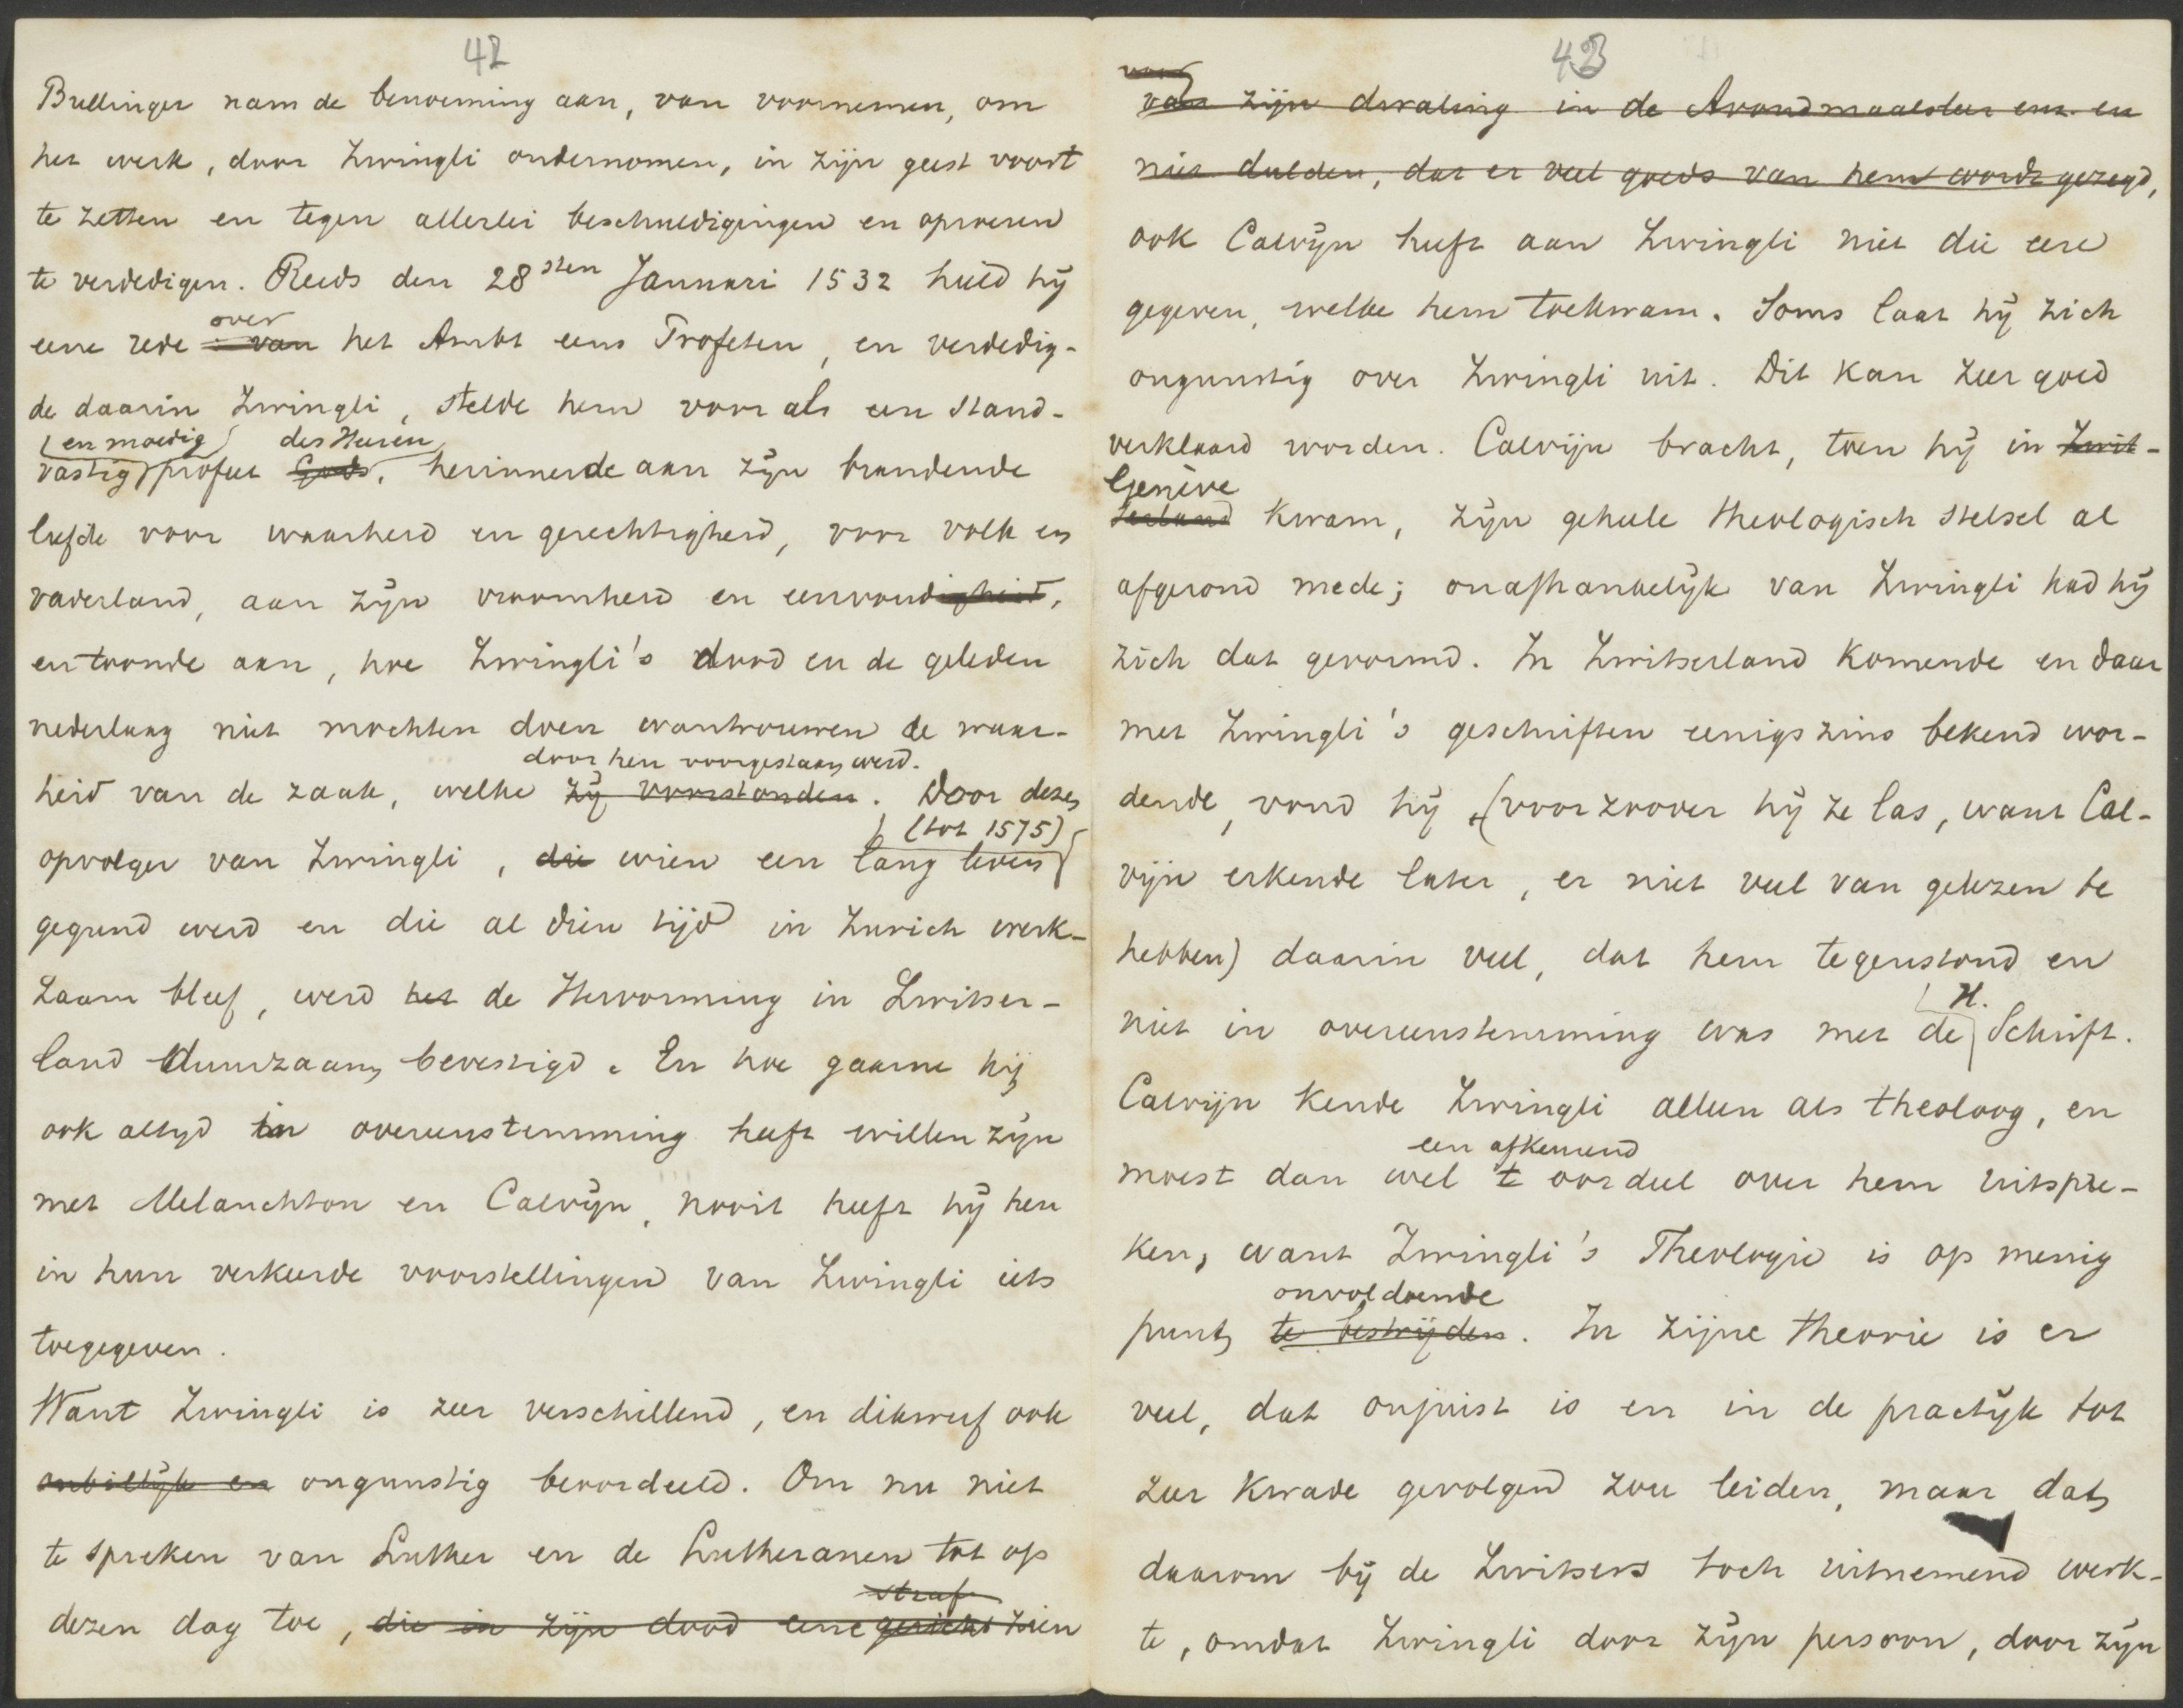 42
Bullinger nam de benoeming aan, van voornemen, om
het werk, door Zwingli ondernomen, in zijn geest voort
te zetten en tegen allerlei beschuldigingen en opvoeren
te verdedigen. Reeds den 28sten Januari 1532 hield hij
over
eene rede van het Ambt eens Profeten, en verdedig-
de daarin Zwingli, stelde hem voor als een stand-
en moedig des Heeren
vastig profeet Gods, herinnerde aan zijn brandende
liefde voor waarheid en gerechtigheid, voor volk en
vaderland, aan zijn vroomheid en eenvoudigheid,
en toonde aan, hoe Zwingli's dood en de geleden
nederlaag niet mochten doen wantrouwen de waar-
door hen voorgestaan werd.
heid van de zaak, welke zij voorstonden. Door dezen
(tot 1575)
opvolger van Zwingli, die wien een lang leven
gegund werd en die al dien tijd in Zurich werk-
zaam bleef, werd het de Hervorming in Zwitser-
land duurzaam bevestigd. En hoe gaarne hij
ook altijd in overeenstemming heeft willen zijn
met Melanchton en Calvijn, nooit heeft hij hen
in hun verkeerde voorstellingen van Zwingli iets
toegegeven.
Want Zwingli is zeer verschillend, en dikwerf ook
onbillijk en ongunstig beoordeeld. Om nu niet
te spreken van Luther en de Lutheranen tot op
straf
dezen dag toe, die in zijn dood eene gericht zien
43
voor
van zijn dwaling in de Avondmaalsleer enz. en
niet dulden, dat er veel goeds van hem wordt gezegd,
ook Calvijn heeft aan Zwingli niet die eere
gegeven, welke hem toekwam. Soms laat hij zich
ongunstig over Zwingli uit. Dit kan zeer goed
verklaard worden. Calvijn bracht, toen hij in Zwit-
Genève
serland kwam, zijn geheele theologisch stelsel al
afgerond mede; onafhankelijk van Zwingli had hij
zich dat gevormd. In Zwitserland komende en daar
met Zwingli's geschriften eenigszins bekend wor-
dende, vond hij (voor zoover hij ze las, want Cal-
vijn erkende later, er niet veel van gelezen te
hebben) daarin veel, dat hem tegenstond en
H.
niet in overeenstemming was met de Schrift.
Calvijn kende Zwingli alleen als theoloog, en
een afkeurend
moest dan wel 't oordeel over hem uitspre-
ken, want Zwingli's Theologie is op menig
onvoldoende
punt te bestrijden. In zijne theorie is er
veel, dat onjuist is en in de practijk tot
zeer kwade gevolgen zou leiden, maar dat
daarom bij de Zwitsers toch uitnemend werk-
te, omdat Zwingli door zijn persoon, door zijn